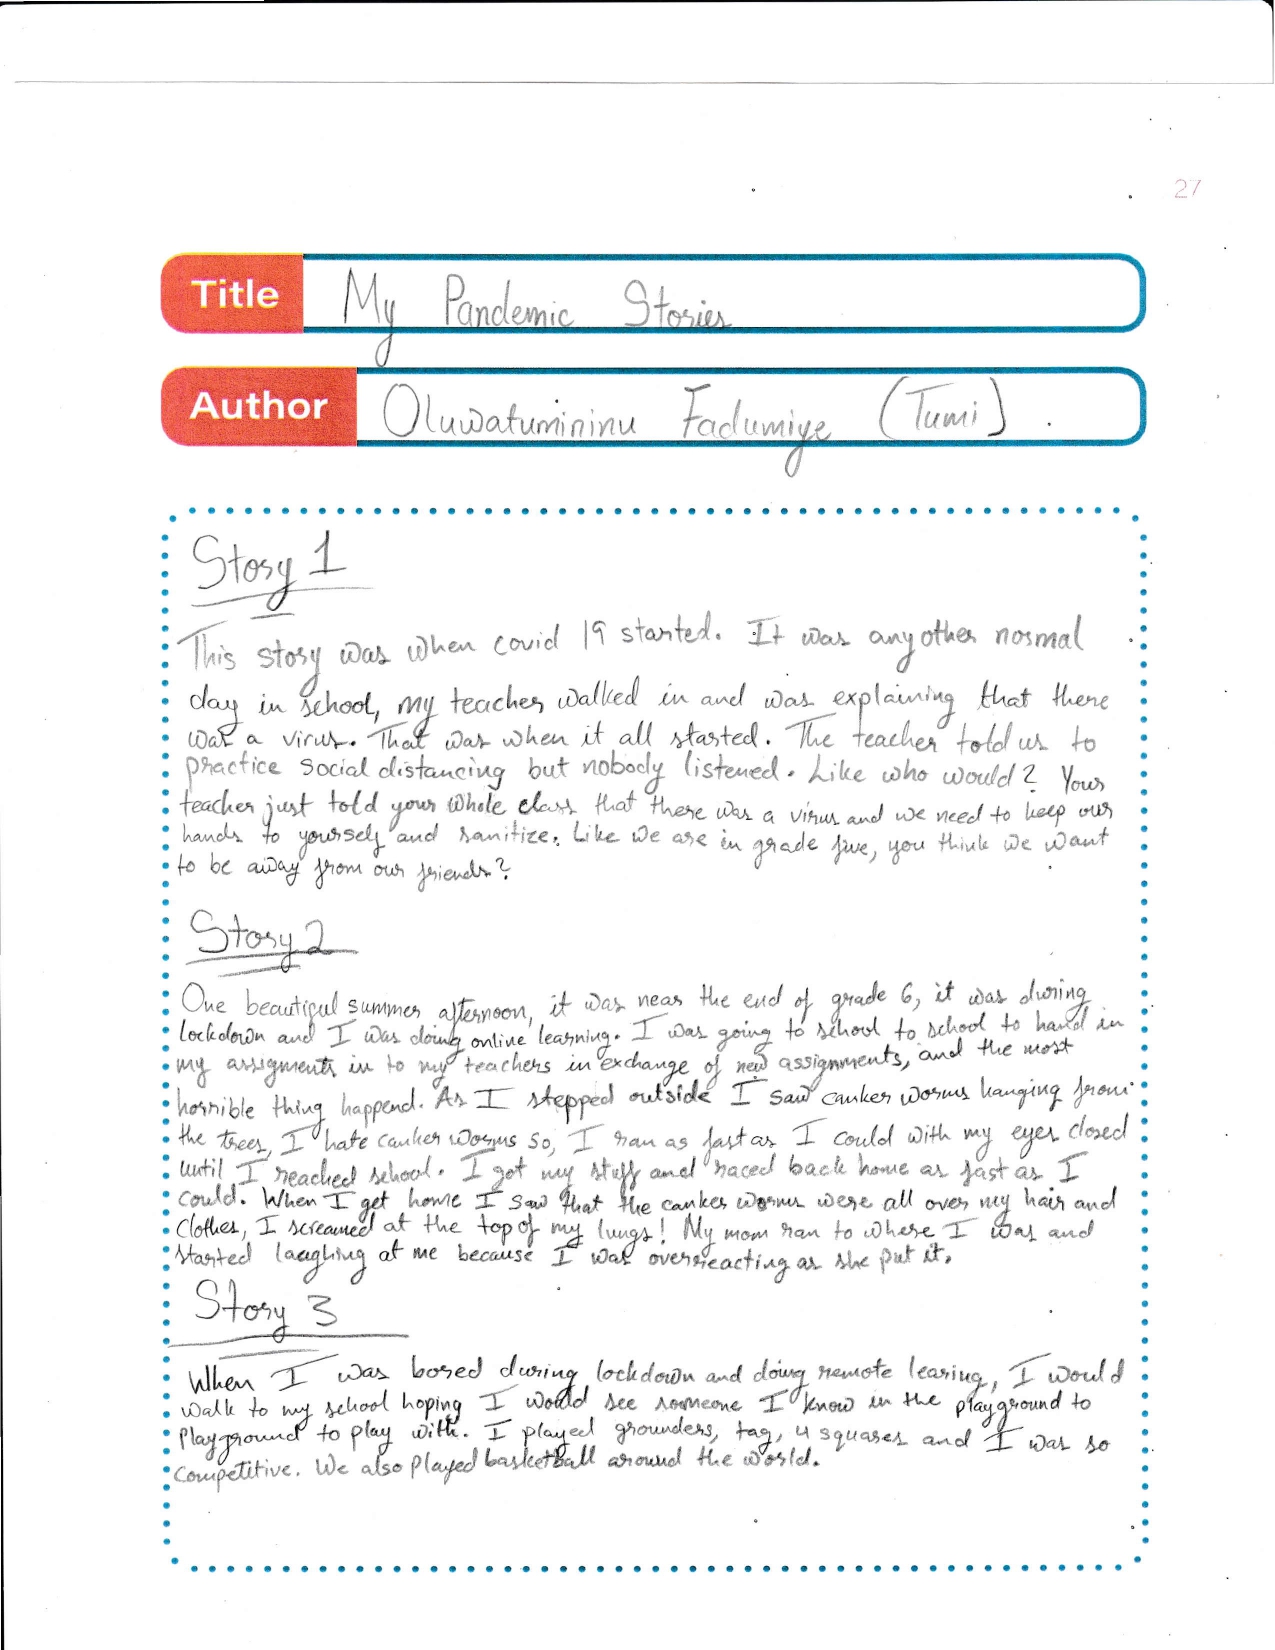 27
Title My Pandemic Stories
Author Oluwatumininu Fadumiye (Tumi)
Story 1
This story was when covid 19 started. It was any other normal
day in school, my teacher walked in and was explaining that there
was a virus. That was when it all started. The teacher told us to
practice social distancing but nobody listened. Like who would? Your
teacher just told your whole class that there was a virus and we need to keep our
hands to yourself and sanitize. Like we are in grade five, you think we want
to be away from our friends?
Story 2
One beautiful summer afternoon, it was near the end of grade 6, it was during
lockdown and I was doing online learning. I was going to school to school to hand in
my assigments in to my teachers in exchange of new assignments, and the most
horrible thing happend. As I stepped outside I saw canker worms hanging from
the trees, I hate canker worms so, I ran as fast as I could with my eyes closed
until I reached school. I got my stuff and raced back home as fast as I
could. When I get home I saw that the canker worms were all over my hair and
clothes, I screamed at the top of my lungs! My mom ran to where I was and
started laughing at me because I was overreacting as she put it.
Story 3
When I was bored during lockdown and doing remote learing, I would
walk to my school hoping I would see someone I know in the playground to
playground to play with. I played grounders, tag, 4 squares and I was so
competitive. We also played basketball around the world.